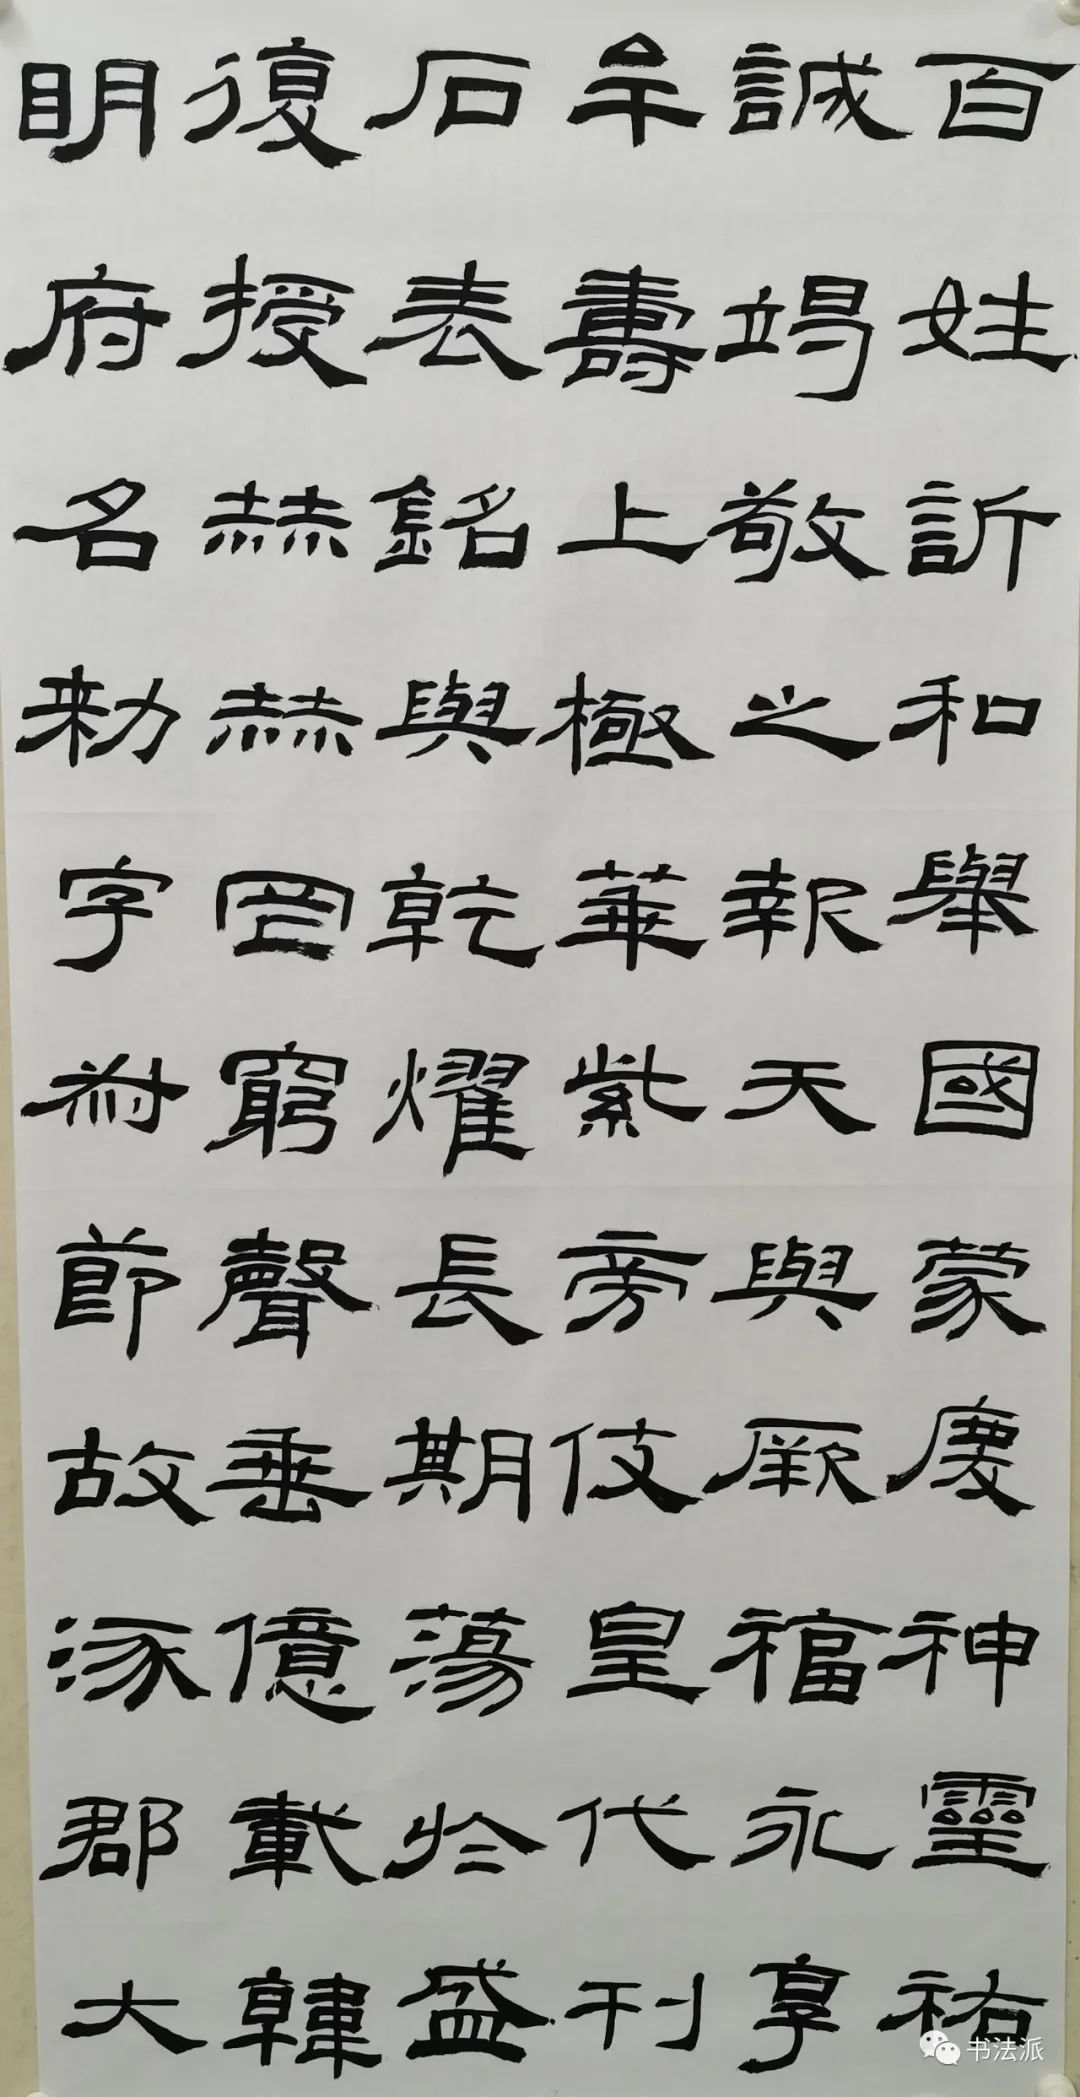 百姓訢和舉國蒙慶神靈祐
誠竭敬之報天與厥福永享
牟壽上極華紫旁伎皇代刊
石表銘與乾燿長期蕩於盛
復授赫赫罔窮聲垂億載韓
明府名勑字叔節故涿郡大
书法派